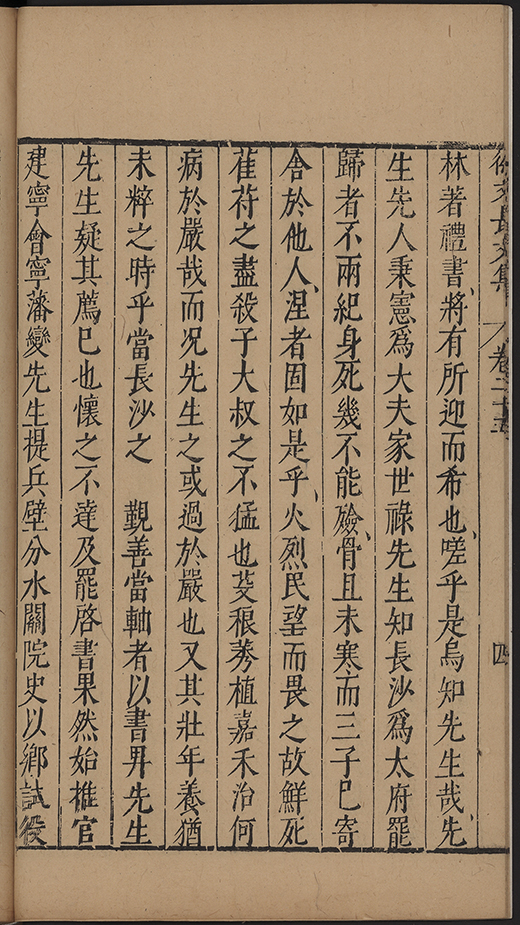 徐文長文集 卷二十 四
林著禮書、將有所迎而希也、嗟乎是烏知先生哉、先
生先人秉憲爲大夫家世祿先生知長沙爲太府罷
歸者不兩紀身死幾不能殮、骨且未寒而三子已寄
舍於他人、涅者固如是乎、火烈民望而畏之故鮮死
萑苻之盡殺子大叔之不猛也芟稂莠植嘉禾治何
病於嚴哉而况先生之或過於嚴也又其壯年養猶
未粹之時乎當長沙之　覲善當軸者以書畀先生
先生疑其薦已也懷之不達及罷啓書果然始推官
建寧會寧藩變先生提兵壁分水關院史以鄉試役